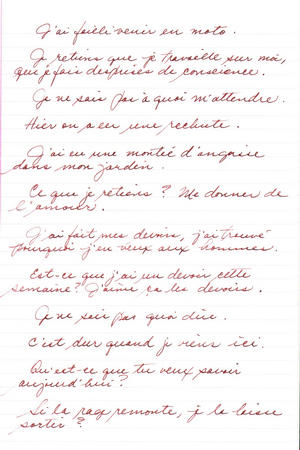 J'ai failli venir en moto.
Je retiens que je travaille sur moi,
que je fais des prises de conscience.
Je ne sais pas à quoi m'attendre.
Hier on a eu une rechute.
J'ai eu une montée d'angoisse
dans mon jardin.
Ce que je retiens ? Me donner de
l'amour.
J'ai fait mes devoirs, j'ai trouvé
pourquoi j'en veux aux hommes.
Est-ce que j'ai un devoir cette
semaine? J'aime ça les devoirs.
Je ne sais pas quoi dire.
C'est dur quand je viens ici.
Qu'est-ce que tu veux savoir
aujourd'hui?
Si la rage remonte, je la laisse
sortir ?